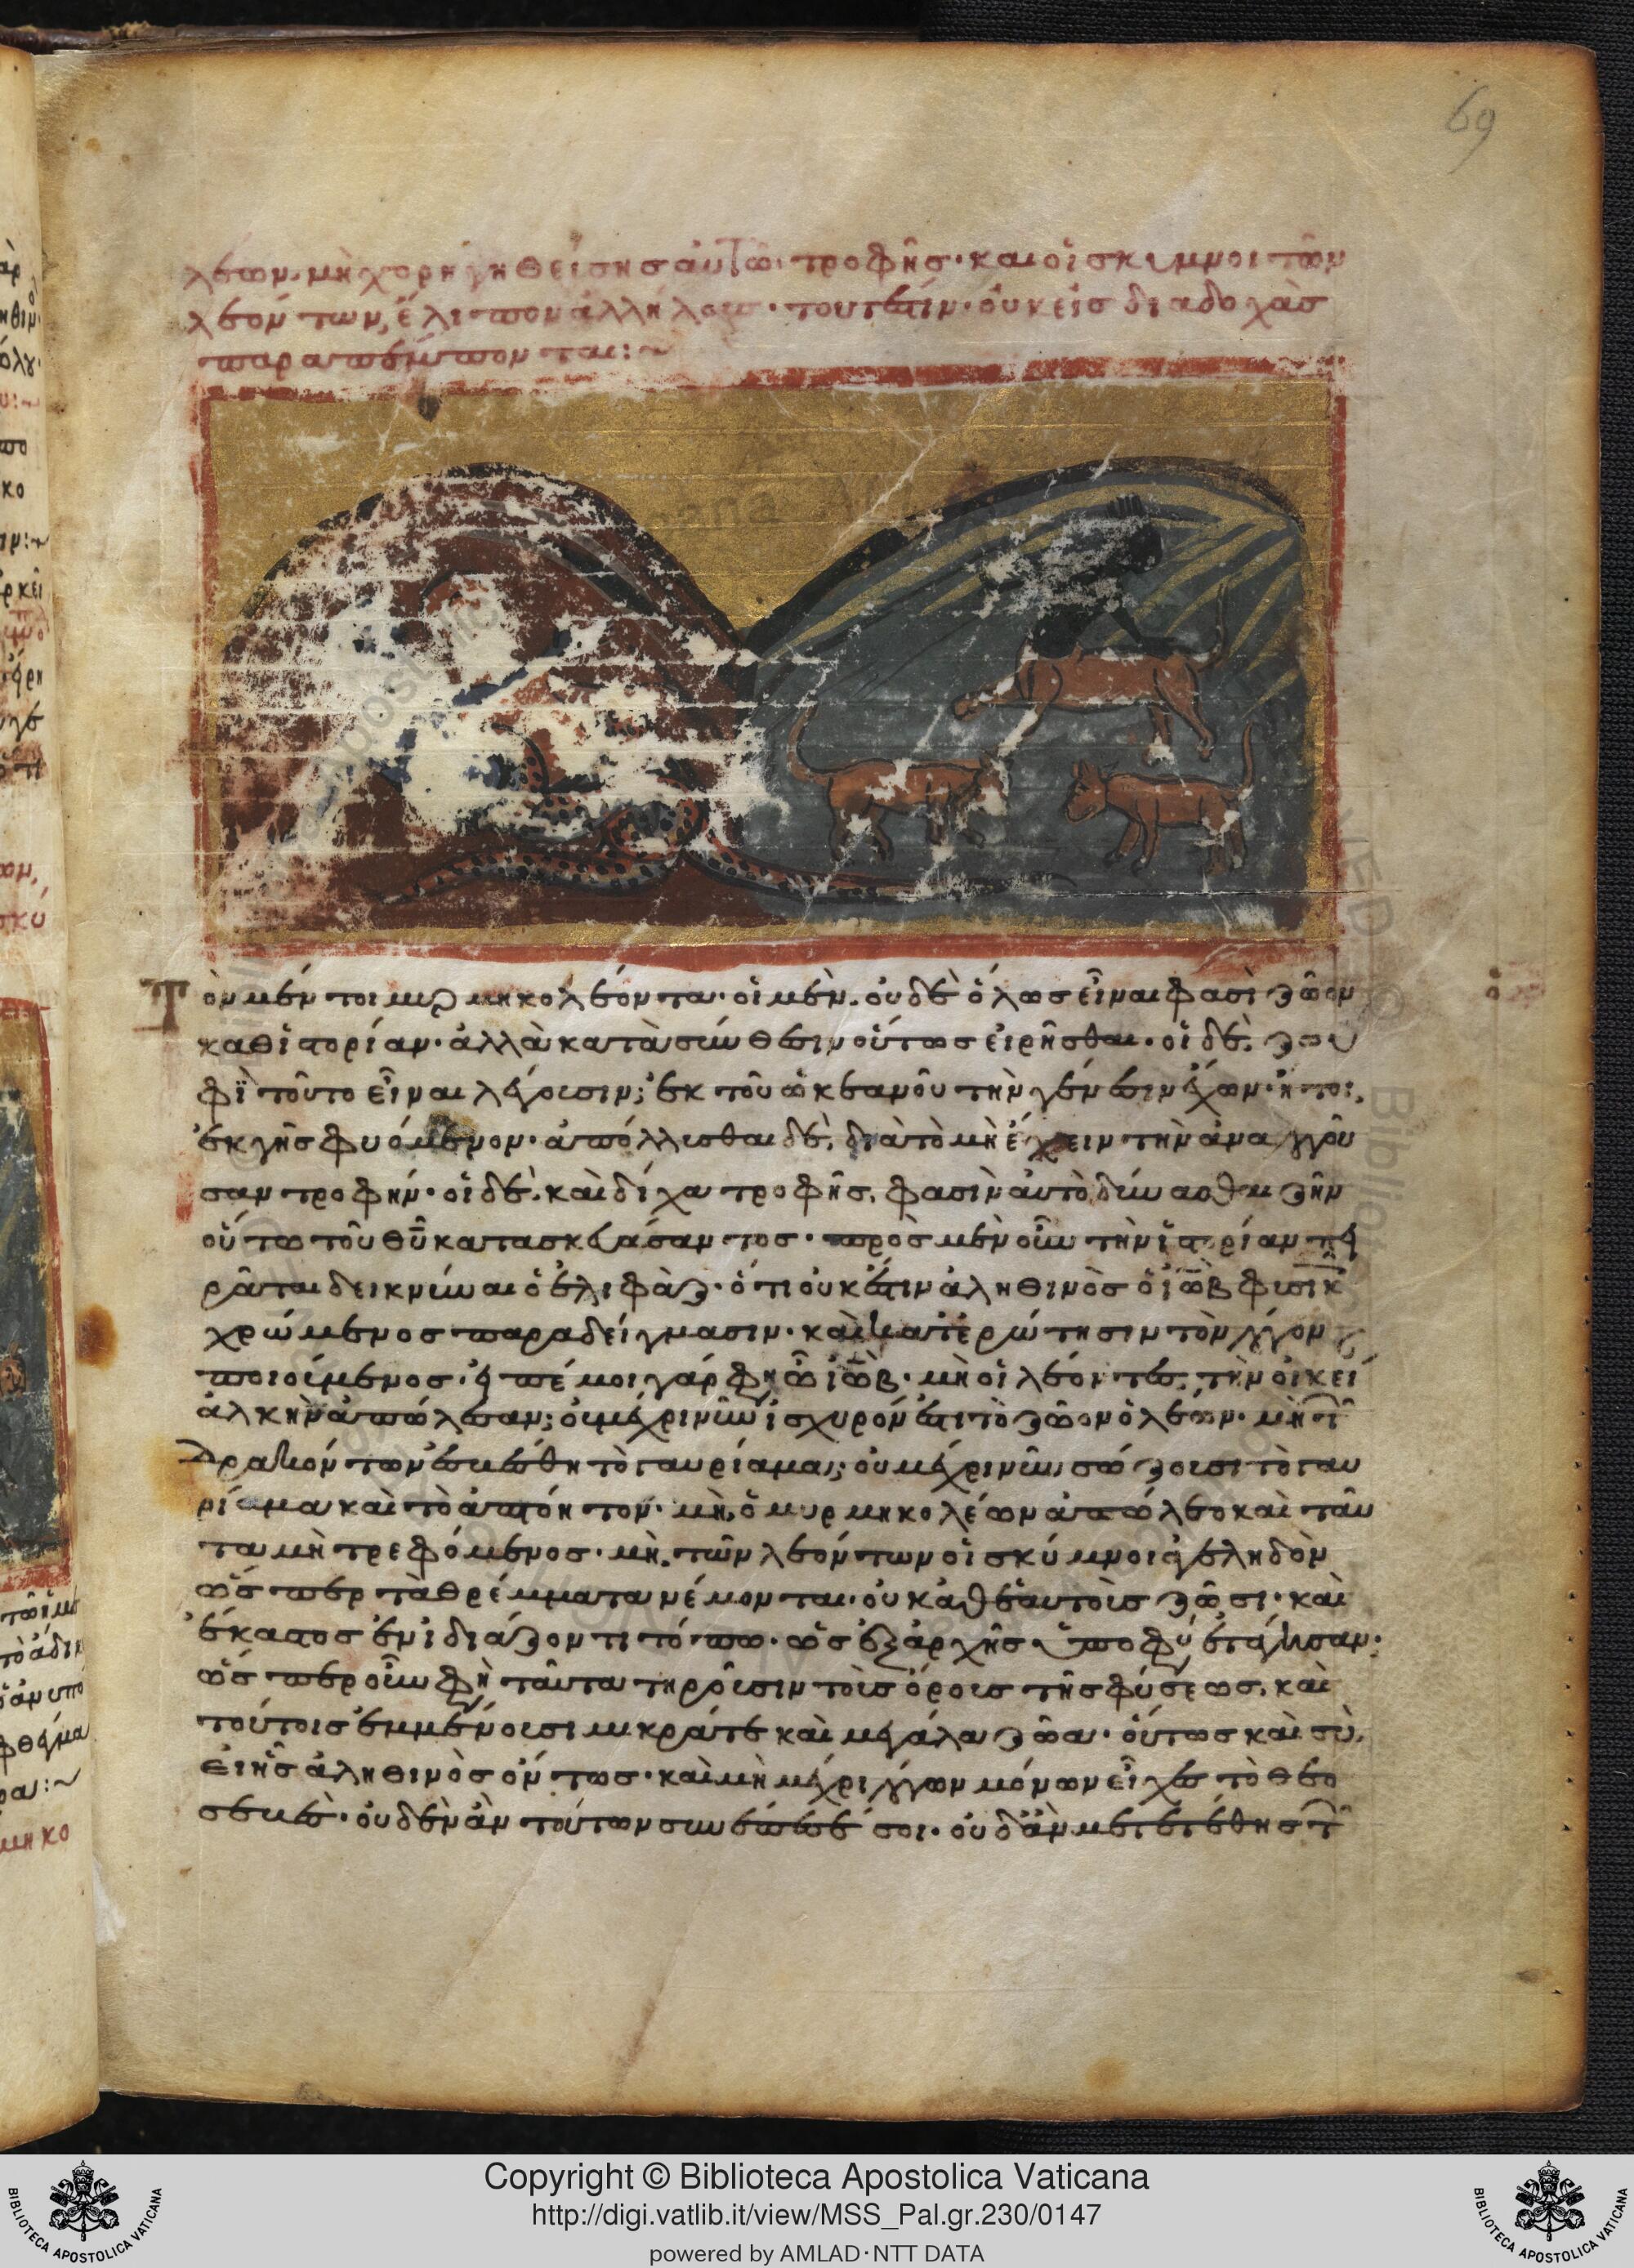 69
λέων, μὴ χορηγηθείσης αὐτῶ τροφῆς· καὶ οἱ σκύμνοι τῶν
λεόντων, ἔλιπον ἀλλήλους· τουτέστιν· οὐκ εἰς διαδοχὰς
παραπέμπονται:~
Τὸν μέντοι μυρμηκολέοντα· οἱ μὲν, οὐδὲ ὅλως εἶναι φασὶ ζῶον
καθ' ἱστορίαν· ἀλλὰ κατὰ σύνθεσιν οὕτως εἰρῆσθαι· οἱ δὲ, ζωύ
φϊον τοῦτο εἶναι λέγουσιν; ἐκ τοῦ ὠκεανοῦ τὴν γένεσιν ἔχων· ἤτοι,
ἐκ γῆς φυόμενον· ἀπόλλυσθαι δὲ, διὰ τὸ μὴ ἔχειν τὴν ἀναγκοῦ
σαν τροφήν· οἱ δὲ, καὶ δίχα τροφῆς, φασὶν αὐτὸ δύνασθαι ζῆν
οὕτω τοῦ θῦ κατασκευάσαντος· πρὸς μὲν οὖν τὴν ἱστορίαν πει
ρᾶται δεικνύναι ὁ ἐλιφὰζ· ὅτι οὐκ ἔστιν ἀληθινὸς ὁ ἰῶβ φυσικ
χρώμενος παραδείγμασιν· καὶ κατ' ἐρώτησιν τὸν λόγον
ποιούμενος· εἰπέ μοι γάρ φη ὦ ἰῶβ· μὴ οἱ λέοντες, τὴν οἰκεί
ἀλκὴν ἀπώλεσαν; οὐ μέχρι νῦν ἰσχυρόν ἐστι τὸ ζῶον ὁ λέων· μὴ τ
δρακόντων ἐσβέσθη τὸ γαυρίαμα; οὐ μέχρι νῦν, σώζουσι τὸ γαυ
ρίαμα καὶ τὸ ἀπτόητον· μὴ, ὁ μυρμηκολέων ἀπώλετο καὶ ταῦ
τα μὴ τρεφόμενος· μὴ, τῶν λεόντων οἱ σκύμνοι ἀγεληδὸν
ὥσπερ τὰ θρέμματα νέμονται· οὐ καθ' ἑαυτοὺς ζῶσι· καὶ
ἕκαστος ἐν ἰδιάζοντι τόπω· ὡς ἐξ ἀρχῆς ὑπὸ φύ ἐτάγησαν·
ὥσπερ οὖν φη ταῦτα τηροῦσιν τοὺς ὅρους τῆς φύσεως, καὶ
τούτοις ἐμμένουσι μικρά τε καὶ μεγάλα ζῶα· οὕτως καὶ σὺ,
εἰ ἦς ἀληθινὸς ὄντως· καὶ μὴ μέχρι λόγων μόνων εἶχες τὸ θεο
σεβὲς· οὐδὲν ἂν τούτων συνέπεσέ σοι· οὐδ' ἂν μετετέθης τ
Copyright © Biblioteca Apostolica Vaticana
http://digi.vatlib.it/view/MSS_Pal.gr.230/0147
powered by AMLAD·NTT DATA
BIBLIOTECA APOSTOLICA VATICANA
BIBLIOTECA APOSTOLICA VATICANA